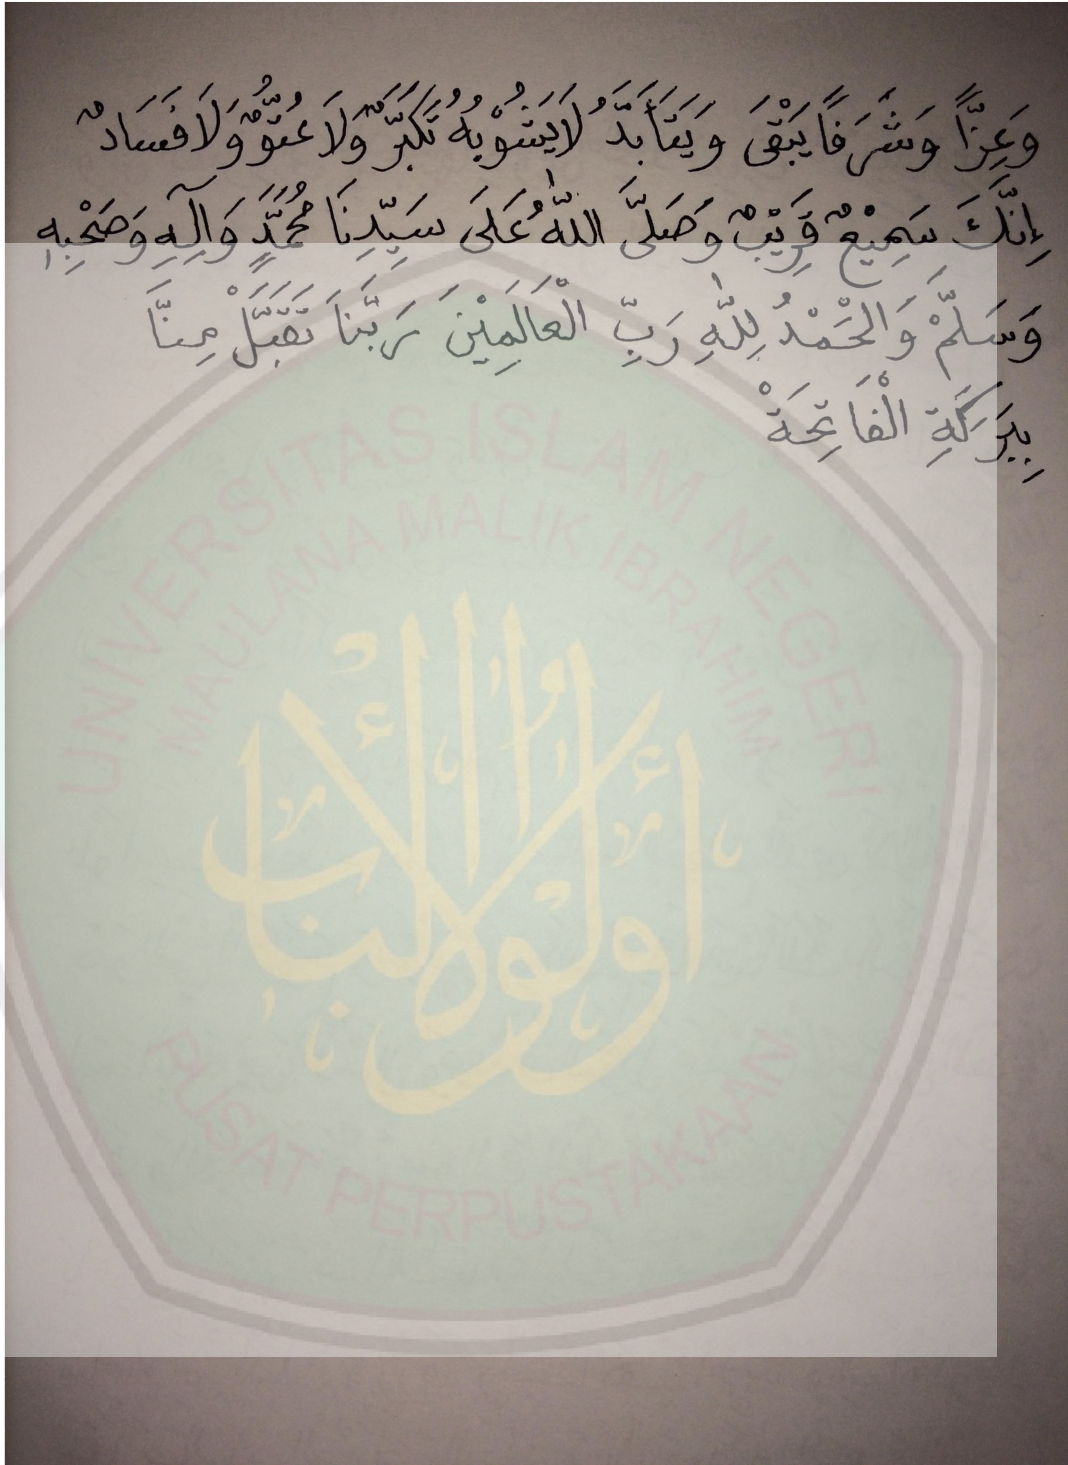 وَعِزًّا وَشَرَفًا يَبْقَى وَيَتَأَبَّدُ لَا يَشُوْبُهُ تَكَبُّرٌ وَلَا عُتُوٌّ وَلَا فَسَادٌ
إِنَّكَ سَمِيْعٌ قَرِيْبٌ وَصَلَّى اللّٰهُ عَلَى سَيِّدِنَا مُحَمَّدٍ وَآلِهِ وَصَحْبِهِ
وَسَلَّمْ وَالْحَمْدُ لِلّٰهِ رَبِّ الْعَالَمِيْنَ رَبَّنَا تَقَبَّلْ مِنَّا
بِبَرَكَةِ الْفَاتِحَةْ
UNIVERSITAS ISLAM NEGERI
MAULANA MALIK IBRAHIM
أولوا الألباب
PUSAT PERPUSTAKAAN